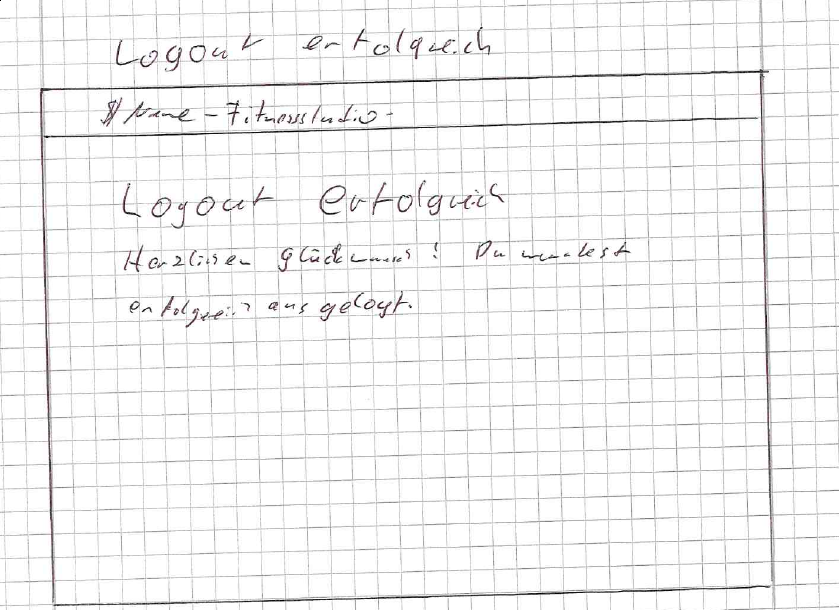 Logout erfolgreich
$Name-Fitnessstudio-
Logout erfolgreich
Herzlichen Glückwunsch! Du wurdest
erfolgreich ausgelogt.